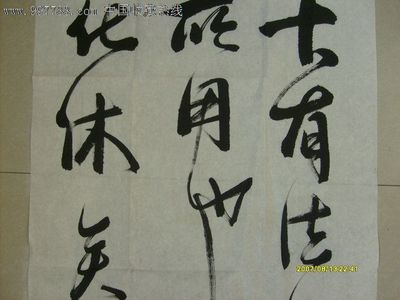 www.997788.com 中国收藏热线
大有法
所用也
化休矣
2007/08/13 22:41